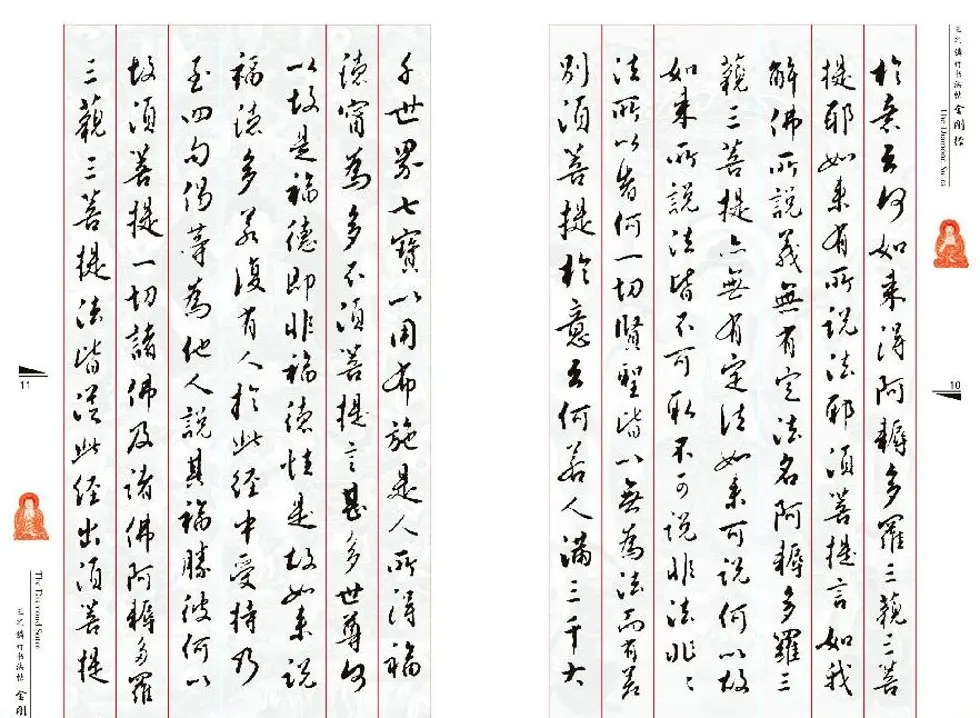 行书法帖 金刚经
The Diamond Sutra
10
於意云何如来得阿耨多羅三藐三菩
提耶如来有所説法耶須菩提言如我
解佛所説義無有定法名阿耨多羅三
藐三菩提亦無有定法如来可説何以故
如来所説法皆不可取不可説非法非〻
法所以者何一切賢聖皆以無為法而有差
别須菩提於意云何若人滿三千大
千世界七寶以用布施是人所得福
德寧為多不須菩提言甚多世尊何
以故是福德即非福德性是故如来説
福德多若復有人於此经中受持乃
至四句偈等為他人説其福勝彼何以
故須菩提一切諸佛及諸佛阿耨多羅
三藐三菩提法皆從此经出須菩提
11
The Diamond Sutra
行书法帖 金刚